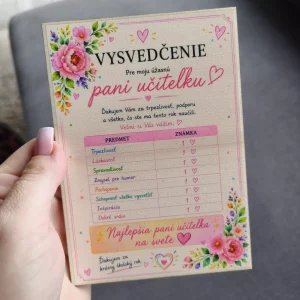 VYSVEDČENIE
Pre moju úžasnú
pani učiteľku
Ďakujem Vám za trpezlivosť, podporu
a všetko, čo ste ma tento rok naučili.
Veľmi si Vás vážim.
PREDMET ZNÁMKA
Trpezlivosť 1
Láskavosť 1
Spravodlivosť 1
Zmysel pre humor 1
Podpora 1
Schopnosť všetko vysvetliť 1
Inšpirácia 1
Dobré srdce 1
Najlepšia pani učiteľka
na svete
Ďakujem za
krásny školský rok